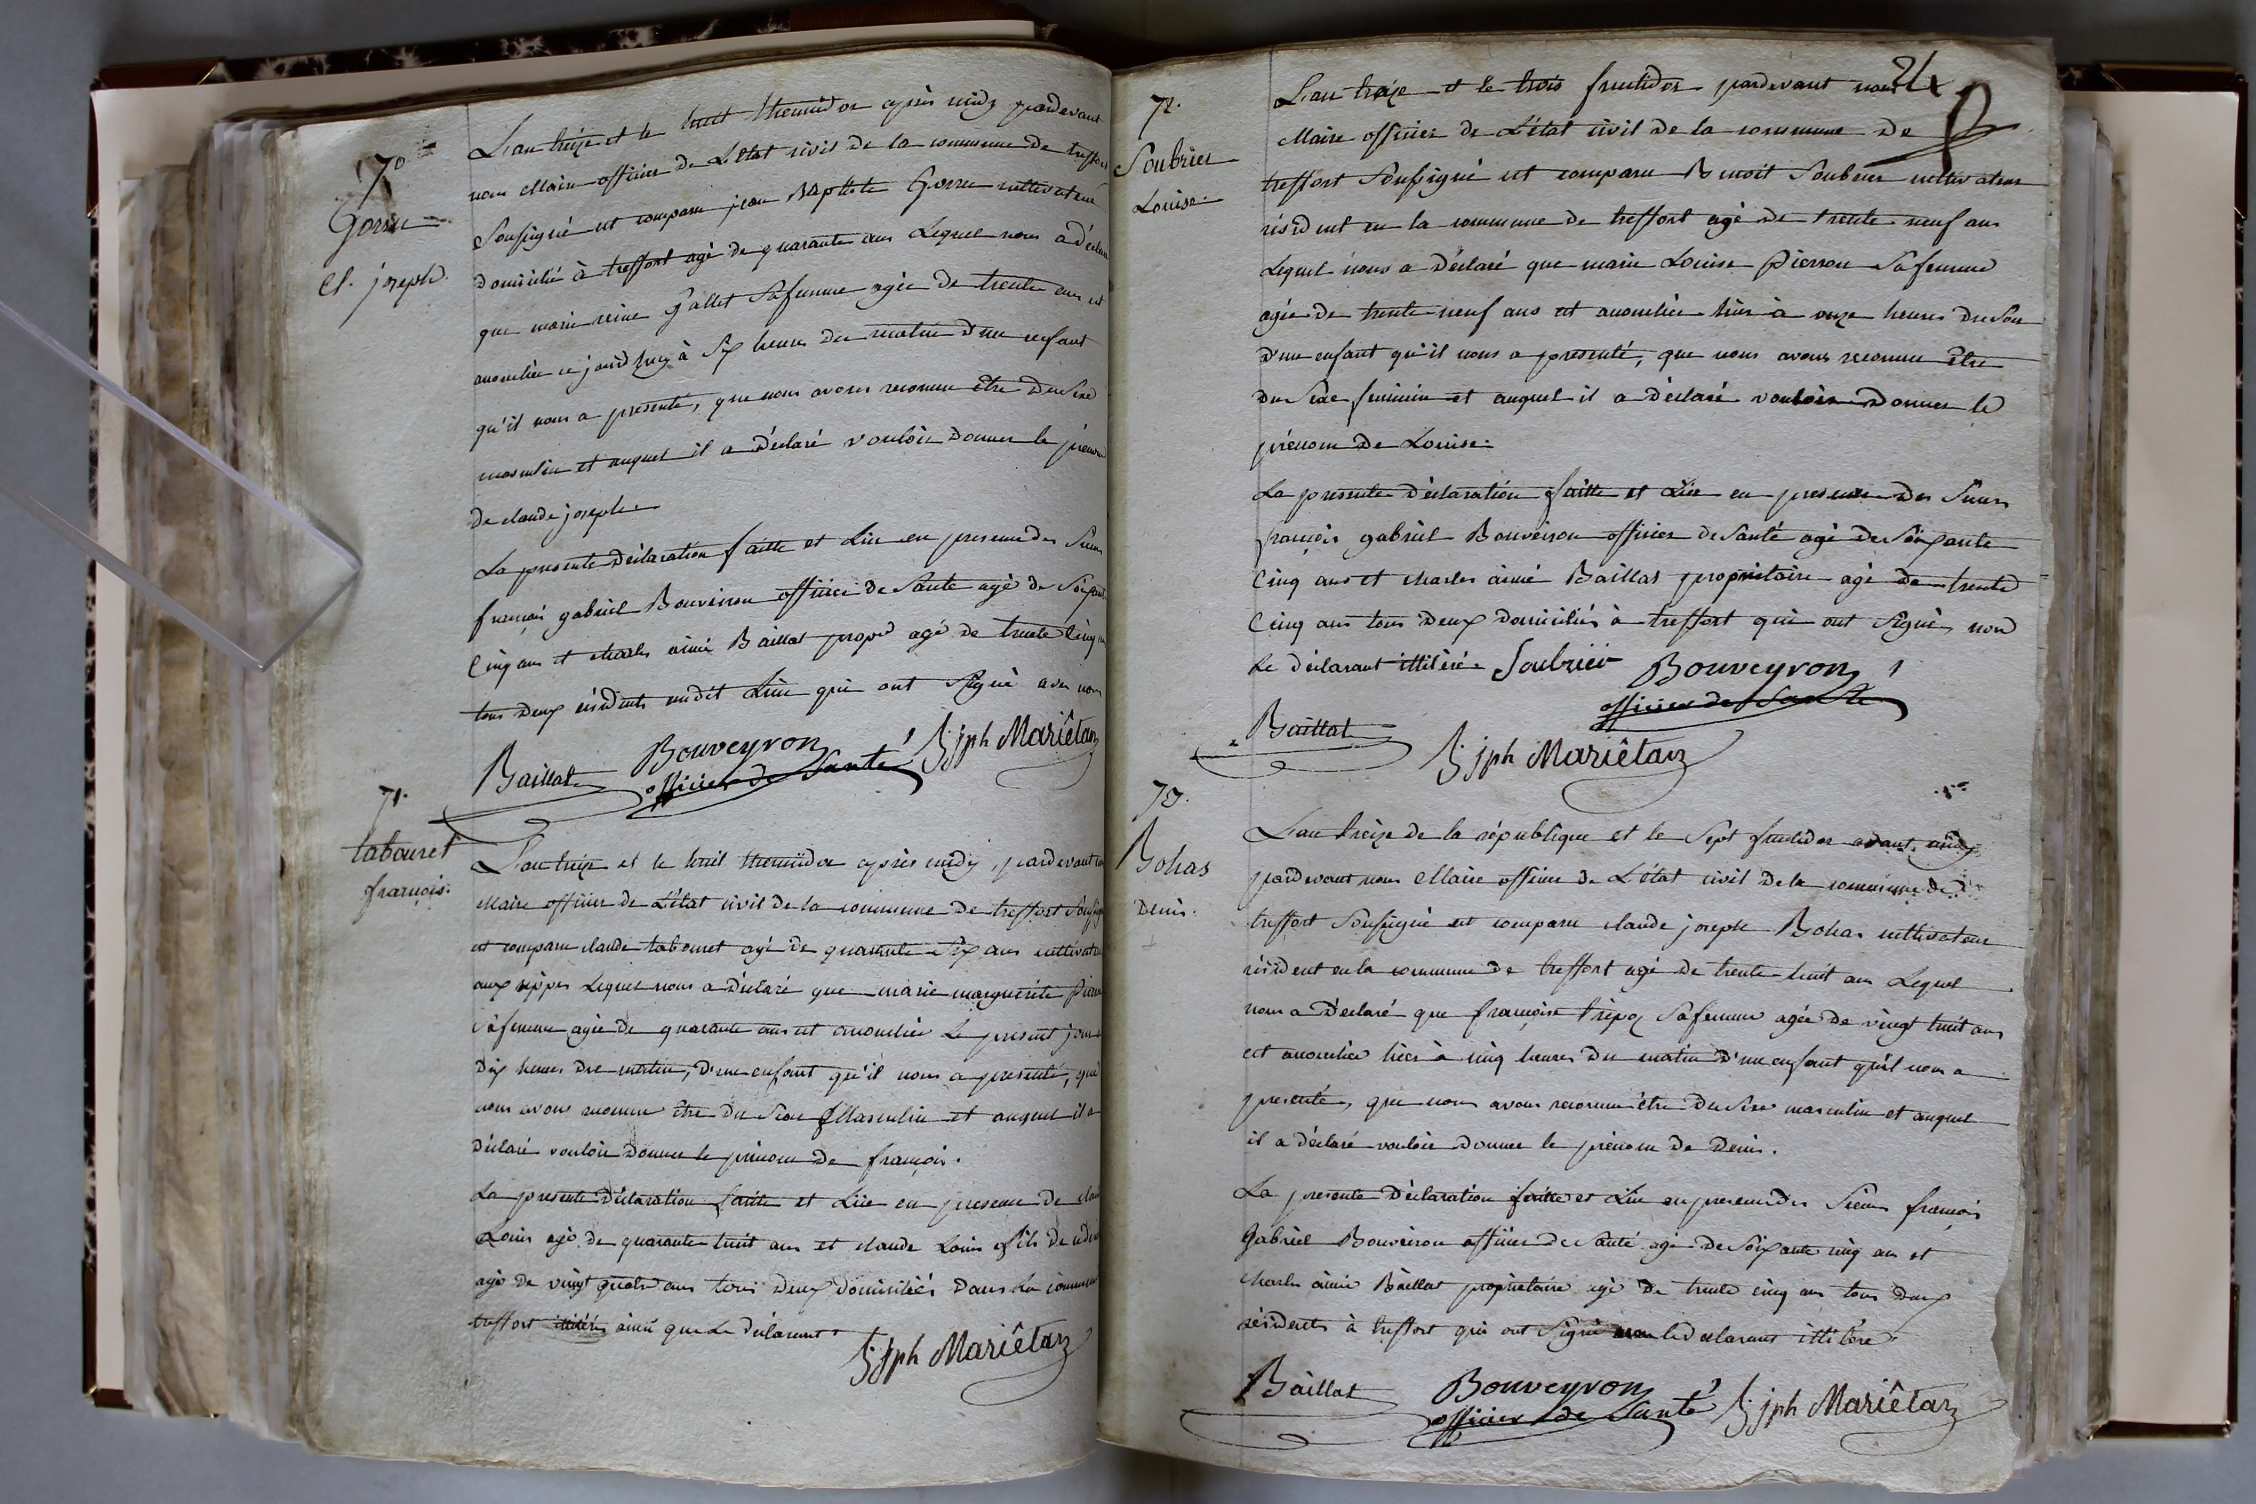 70
Gorru
Cl. joseph.
L'an treize et le huit thermidor après midy pardevant
nous Maire officier de L'état civil de la commune de treffort
Soussigné est comparu jean Baptiste Gorru cultivateur
domicilié à treffort agé de quarante ans Lequel nous a déclaré
que marie reine Gallet Sa femme agée de trente ans est
accouchée ce jourd'huy à Six heures du matin d'un enfant
qu'il nous a presenté, que nous avons reconnu être du Sexe
masculin et auquel il a déclaré vouloir donner le prénom
de claude joseph.
La presente déclaration faitte et Lüe en presence des Sieurs
françois gabriel Bouveiron officier de Santé agé de Soixante
Cinq ans et charles aimé Baillat propre agé de trente Cinq ans
tous deux résidents audit Lieu qui ont Signé avec nous
Baillat Bouveyron officier de Santé jph Mariêtan
71.
tabouret
françois.
L'an treize et le huit thermidor après midy, pardevant nous
Maire officier de L'état civil de la commune de treffort Soussigné
est comparu claude tabouret agé de quarante Six ans cultivateur
aux Lequel nous a déclaré que marie marguerite
Sa femme agée de quarante ans est accouchée Le present jour
dix heures du matin, d'un enfant qu'il nous a presenté, que
nous avons reconnu être du Sexe Masculin et auquel il a
déclaré vouloir donner le prénom de françois.
La presente déclaration faitte et Lüe en presence de
Louis agé de quarante huit ans et claude Louis fils de
agé de vingt quatre ans tous deux domiciliés dans la commune
treffort illitérés ainsi que Le déclarant
jph Mariêtan
24
72.
Soubrier
Louise.
L'an treize et le trois fructidor pardevant nous
Maire officier de L'état civil de la commune de
treffort Soussigné est comparu Benoit Soubrier cultivateur
résident en la commune de treffort agé de trente neuf ans
Lequel nous a déclaré que marie Louise Pierron Sa femme
agée de trente neuf ans est accouchée hier à onze heures du Soir
d'un enfant qu'il nous a presenté, que nous avons reconnu être
du Sexe feminin et auquel il a déclaré vouloir donner le
prénom de Louise.
La presente déclaration faitte et Lüe en presence des Sieurs
françois gabriel Bouveiron officier de Santé agé de Soixante
Cinq ans et charles aimé Baillat propriétaire agé de trente
Cinq ans tous deux domiciliés à treffort qui ont Signé, non
Le déclarant illitéré. Soubrier Bouveyron
officier de Santé
Baillat jph Mariêtan
73.
Bohas
Denis.
L'an treize de la république et le Sept fructidor avant midy
pardevant nous Maire officier de L'état civil de la commune de
treffort Soussigné est comparu claude joseph Bohas cultivateur
résident en la commune de treffort agé de trente huit ans Lequel
nous a déclaré que françoise Sa femme agée de vingt huit ans
est accouchée hier à cinq heures du matin d'un enfant qu'il nous a
presenté, que nous avons reconnu être du Sexe masculin et auquel
il a déclaré vouloir donner le prénom de Denis.
La presente déclaration faitte et Lüe en presence des Sieurs françois
Gabriel Bouveiron officier de Santé agé de Soixante cinq ans et
charles aimé Baillat propriétaire agé de trente cinq ans tous deux
résidents à treffort qui ont Signé non le déclarant illitéré.
Baillat Bouveyron officier de Santé jph Mariêtan